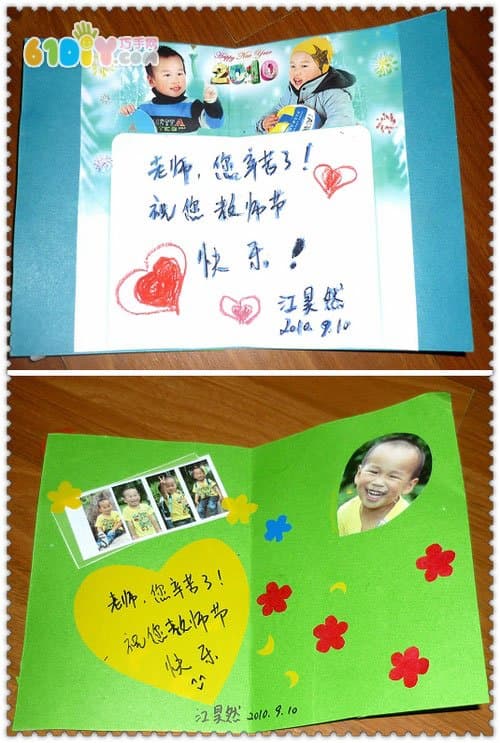 61DIY巧手网
.com
Happy New Year
2010
老师，您辛苦了！
祝您教师节
快乐！
江昊然
2010.9.10
老师，您辛苦了！
祝您教师节
快乐
江昊然 2010.9.10